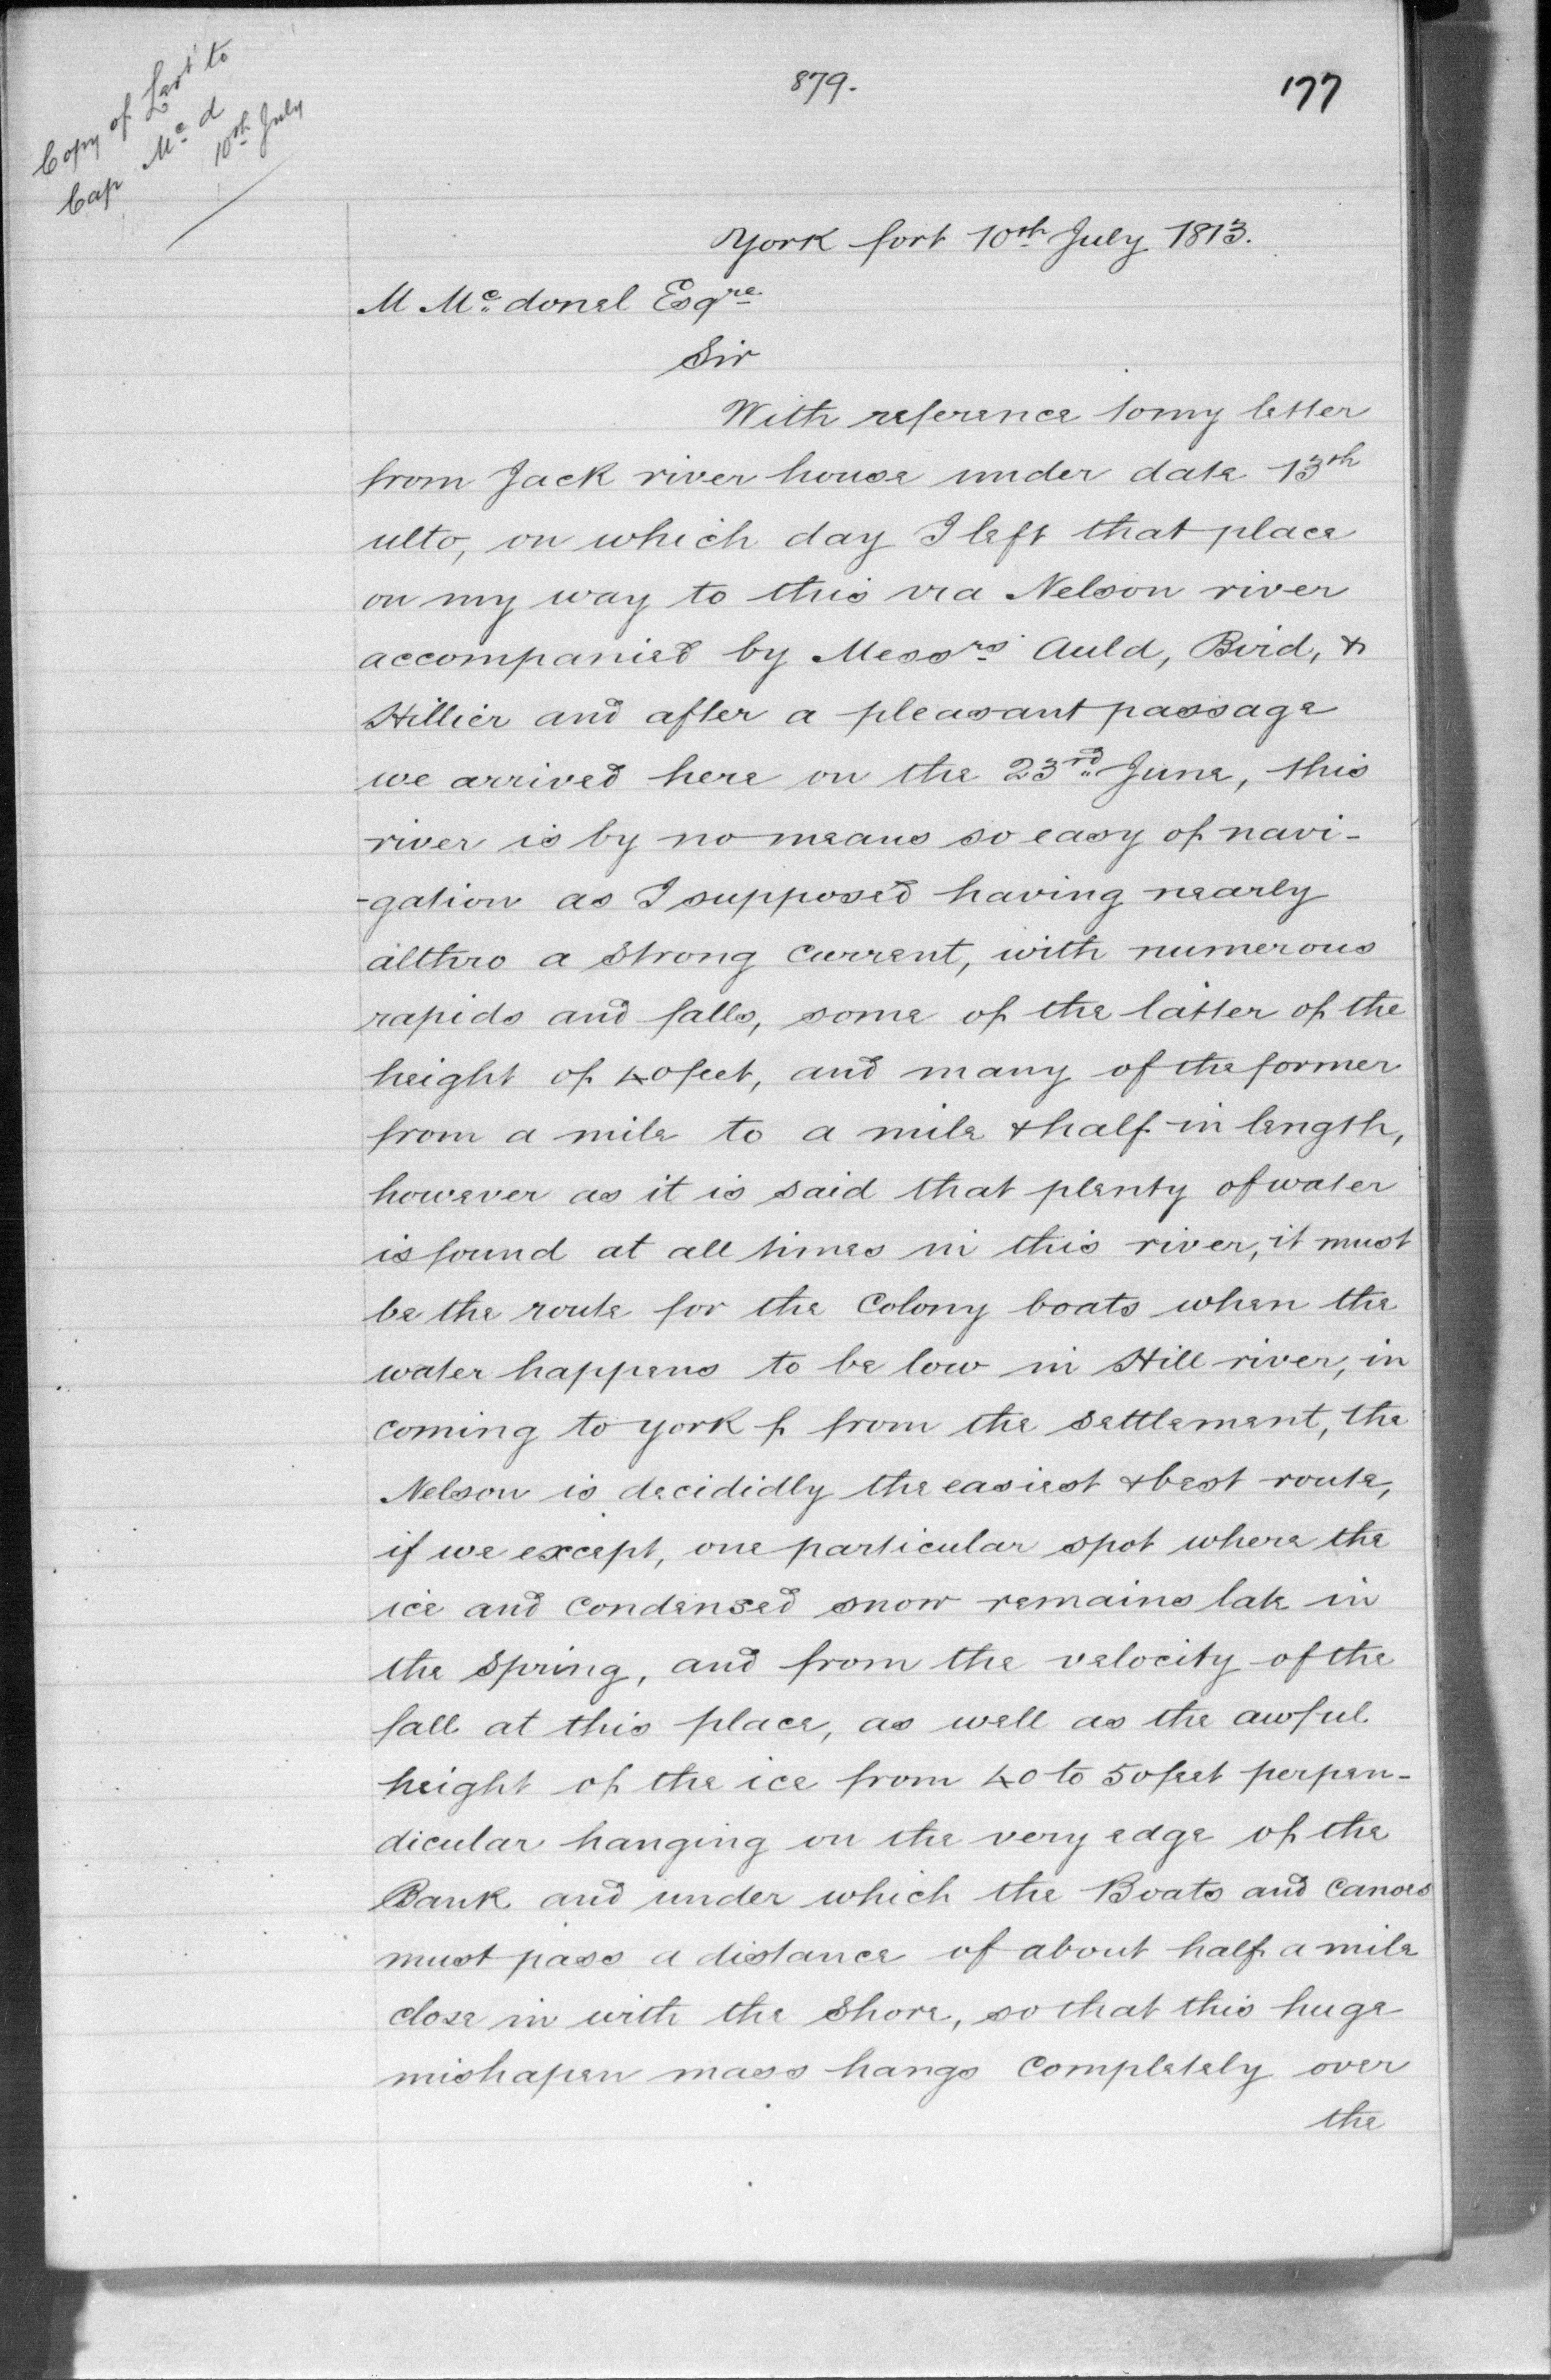 Copy of Last to
Cap Mc d
10th July
879.
177
York fort 10th July 1813.
M Mc donel Esqre
Sir
With reference to my letter
from Jack river house under date 13th
ulto, on which day I left that place
on my way to this via Nelson river
accompanied by Messrs Auld, Bird, &
Hillier and after a pleasant passage
we arrived here on the 23rd June, this
river is by no means so easy of navi-
-gation as I supposed having nearly
althro a strong Current, with numerous
rapids and falls, some of the latter of the
height of 40 feet, and many of the former
from a mile to a mile & half in length,
however as it is said that plenty of water
is found at all times in this river, it must
be the route for the Colony boats when the
water happens to be low in Hill river, in
coming to York f from the settlement, the
Nelson is decididly the easiest & best route,
if we except, one particular spot where the
ice and Condensed snow remains late in
the Spring, and from the velocity of the
fall at this place, as well as the awful
height of the ice from 40 to 50 feet perpen-
dicular hanging on the very edge of the
Bank and under which the Boats and Canoes
must pass a distance of about half a mile
close in with the Shore, so that this huge
mishapen mass hangs Completely over
the